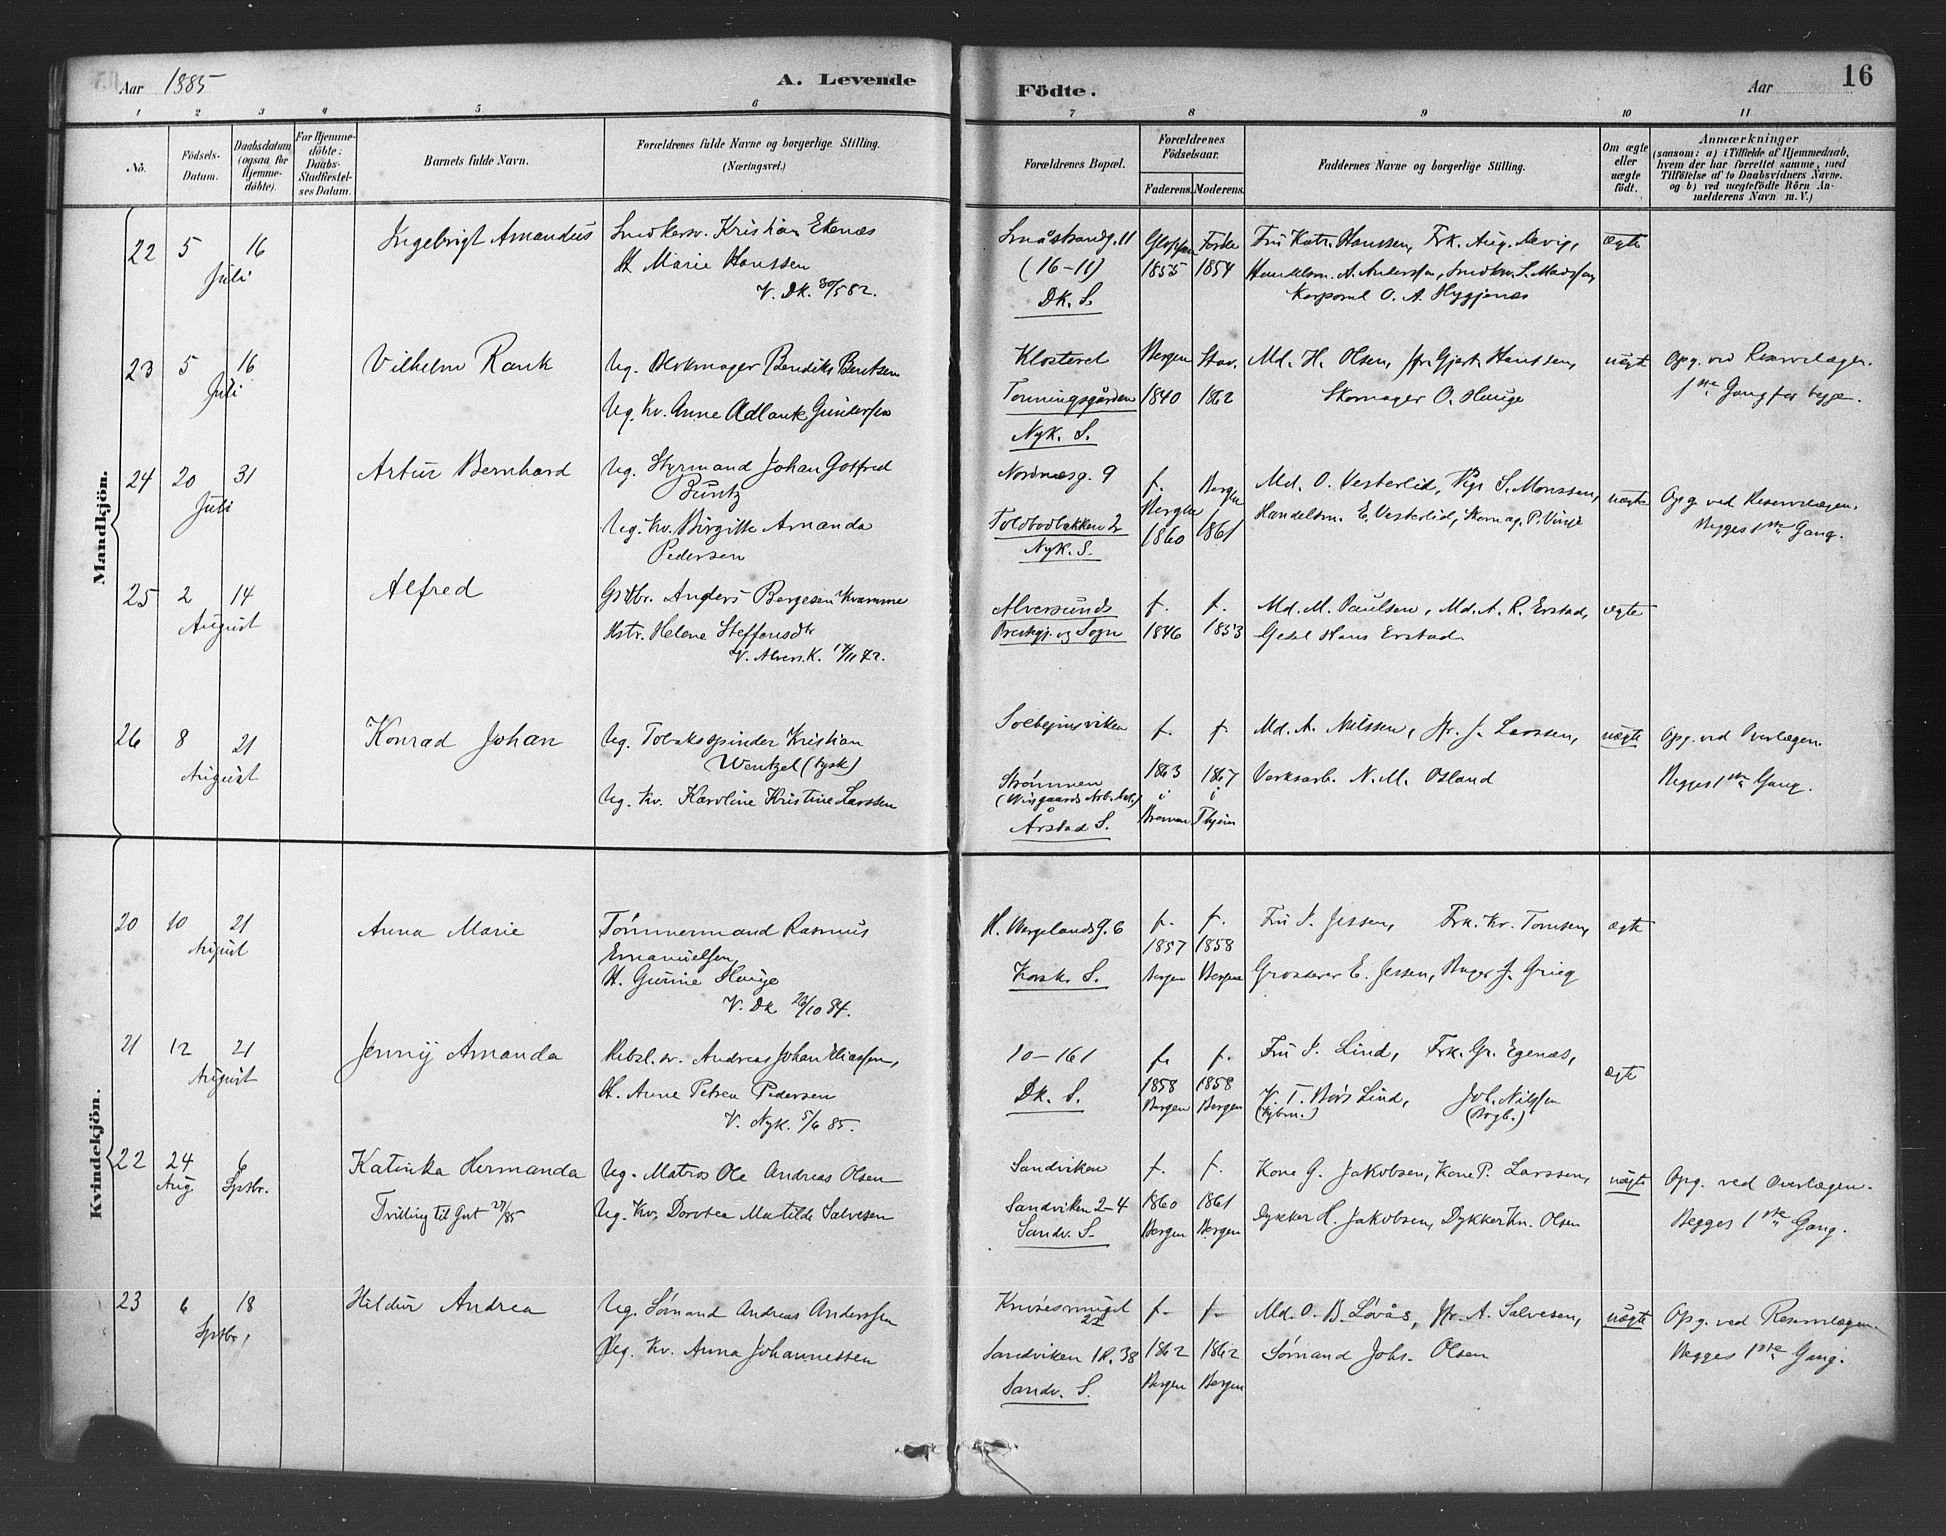 Aar 1885
A. Levende
Födte.
Aar
16
1 2 3 4 5 6
7 8 9 10 11
No.
Födsels-
Datum.
Daabsdatum
(ogsaa for
Hjemme-
döbte).
For Hjemme-
döbte:
Daabs-
Stadfæstel-
ses Datum.
Barnets fulde Navn.
Forældrenes fulde Navne og borgerlige Stilling.
(Næringsvei.)
Forældrenes Bopæl.
Forældrenes
Födselsaar.
Faderens. Moderens.
Faddernes Navne og borgerlige Stilling.
Om ægte
eller
uægte
födt.
Anmærkninger
(saasom: a) i Tilfælde af Hjemmedaab,
hvem der har forrettet samme, med
Tilföielse af to Daabsvidners Navne.
og b) ved uægtefödte Börn An-
melderens Navn m. V.)
Mandkjön.
22 5 16
Juli
Ingebrigt Amandus
Snedkersv. Kristian Ekenæs
H. Marie Hanssen
V. Dk. 30/5 82.
Småstrandg. 11
(16-11)
Dk. S.
Gloppen
1855
Förde
1854
Fru Katr. Hanssen, Frk. Aug. Nevig,
Handelsm. A. Anderssen, Snedksv. L. Madssen,
Korporal O. A. Hyggenæs
ægte
23 5 16
Juli
Vilhelm Rank
Ug. Blokmager Bendiks Bentsen
Ug. Kv. Anne Adlauk Gundersen
Klosteret
Tonningsgården
Nyk. S.
Bergen
1840
Stav.
1862
Md. H. Olsen, Jfr. Gjert. Hanssen,
Skomager O. Hauge
uægt
Opg. ved Reservelægen.
1ste Gang for begge.
24 20 31
Juli
Artur Bernhard
Ug. Styrmand Johan Gotfred
Buntz
Ug. Kv. Birgitte Amanda
Pedersen
Nordnæsg. 9
Toldbodbakken 2
Nyk. S.
f.
Bergen
1860
Bergen
1861
Md. O. Vesterlid, Pige S. Monssen,
Handelsm. E. Vesterlid, Skomag. P. Vinje
uægte
Opg. ved Reservelægen.
Begges 1ste Gang.
25 2 14
August
Alfred
Gdbr. Anders Børgesen Kvamme
Hstr. Helene Steffensdtr
V. Alvers. K. 17/11 72.
Alversunds
Prestegj. og Sogn
f.
1846
f.
1853
Md. M. Paulsen, Md. A. R. Erstad,
Gesel Hans Erstad.
ægte
26 8 21
August
Konrad Johan
Ug. Tobakspinder Kristian
Wentzel (tysk)
Ug. Kv. Karoline Kristine Larssen
Solhejmsviken
Strømmen
(Wisgaards Arb.bol.)
Årstad S.
f.
1863
i
Bremen
f.
1867
i
Thjem
Md. A. Nilssen, Jfr. J. Larssen,
Verksarb. N. M. Osland
uægte
Opg. ved Overlægen.
Begges 1ste Gang.
Kvindekjön.
20 10 21
August
Anna Marie
Tømmermand Rasmus
Emanuelsen,
H. Gurine Hauge
V. Dk 26/10 84.
H. Wergelandsg. 6
Korsk. S.
f.
1857
Bergen
f.
1858
Bergen
Fru I. Jessen, Frk. Kr. Tomsen,
Grosserer E. Jessen, Bager J. Grieg
ægte
21 12 21
August
Jenny Amanda
Rebsl.sv. Andreas Johan Eliassen,
H. Anne Petrea Pedersen
V. Nyk. 5/6 85.
10-161
Dk. S.
f.
1858
Bergen
f.
1858
Bergen
Fru I. Lind, Frk. Gr. Egenæs,
V. T. Børs Lind, Joh. Nilssen
(Kjbm.) (Bogb.)
ægte
22 24 6
Aug. Sptbr.
Katinka Hermanda
Tvilling til Gut 27/85
Ug. Matros Ole Andreas Olsen
Ug. Kv. Dorotea Matilde Salvesen
Sandviken
Sandviken 2-4
Sandv. S.
f.
1860
Bergen
f.
1861
Bergen
Kone G. Jakobsen, Kone P. Larssen,
Dykker H. Jakobsen, Dykker Kn. Olsen
uægte
Opg. ved Overlægen.
Begges 1ste Gang.
23 6 18
Sptbr.
Hildur Andrea
Ug. Sømand Andreas Anderssen
Pig. Kv. Anna Johannessen
Knøsesmuget
22
Sandviken 1R. 38
Sandv. S.
f.
1862
Bergen
f.
1862
Bergen
Md. O. B. Løvås, Jfr. A. Salvesen,
Sømand Johs. Olsen
uægte
Opg. ved Reservelægen.
Begges 1ste Gang.